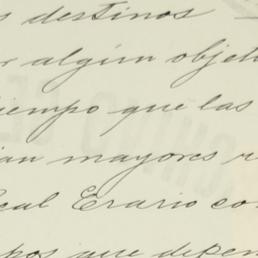 s destinos
r algún objet
tiempo que las
ian mayores r
eal Erario co
pos que depen